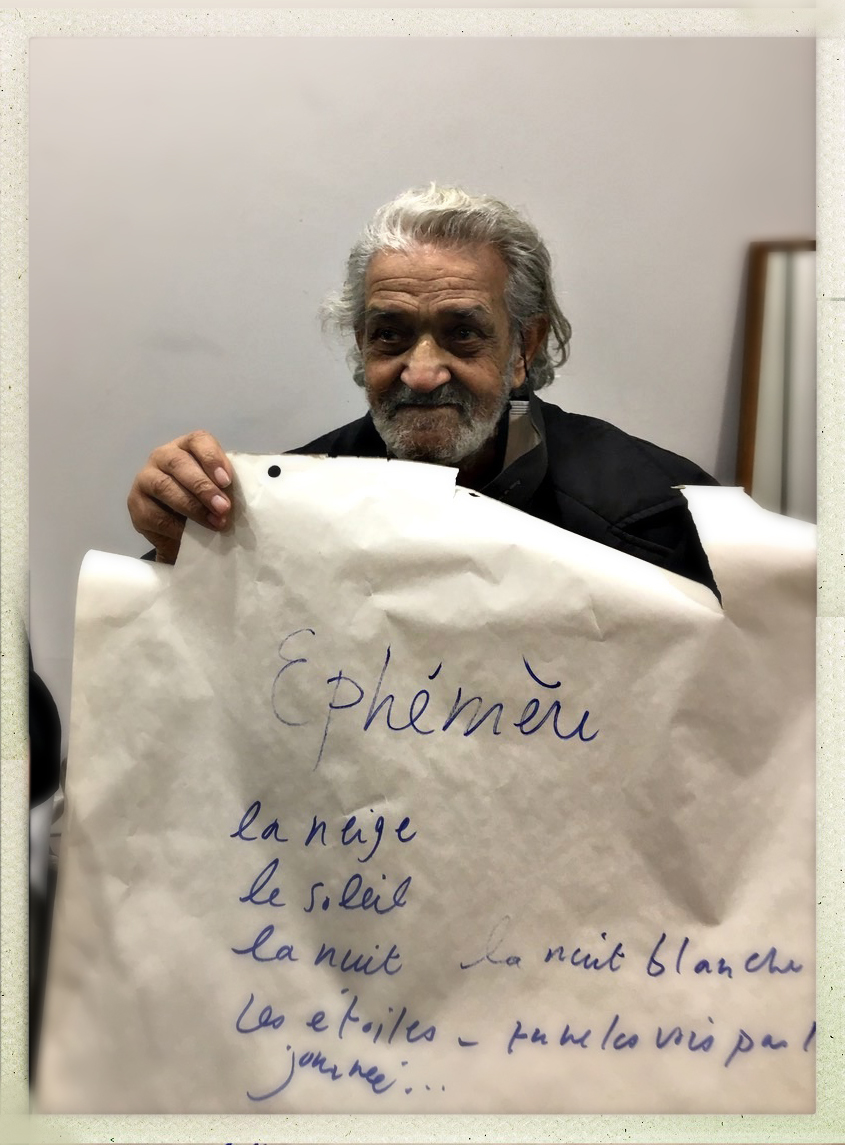 Ephémère
la neige
le soleil
la nuit la nuit blanche
Les étoiles - tu ne les vois pas l
journée...